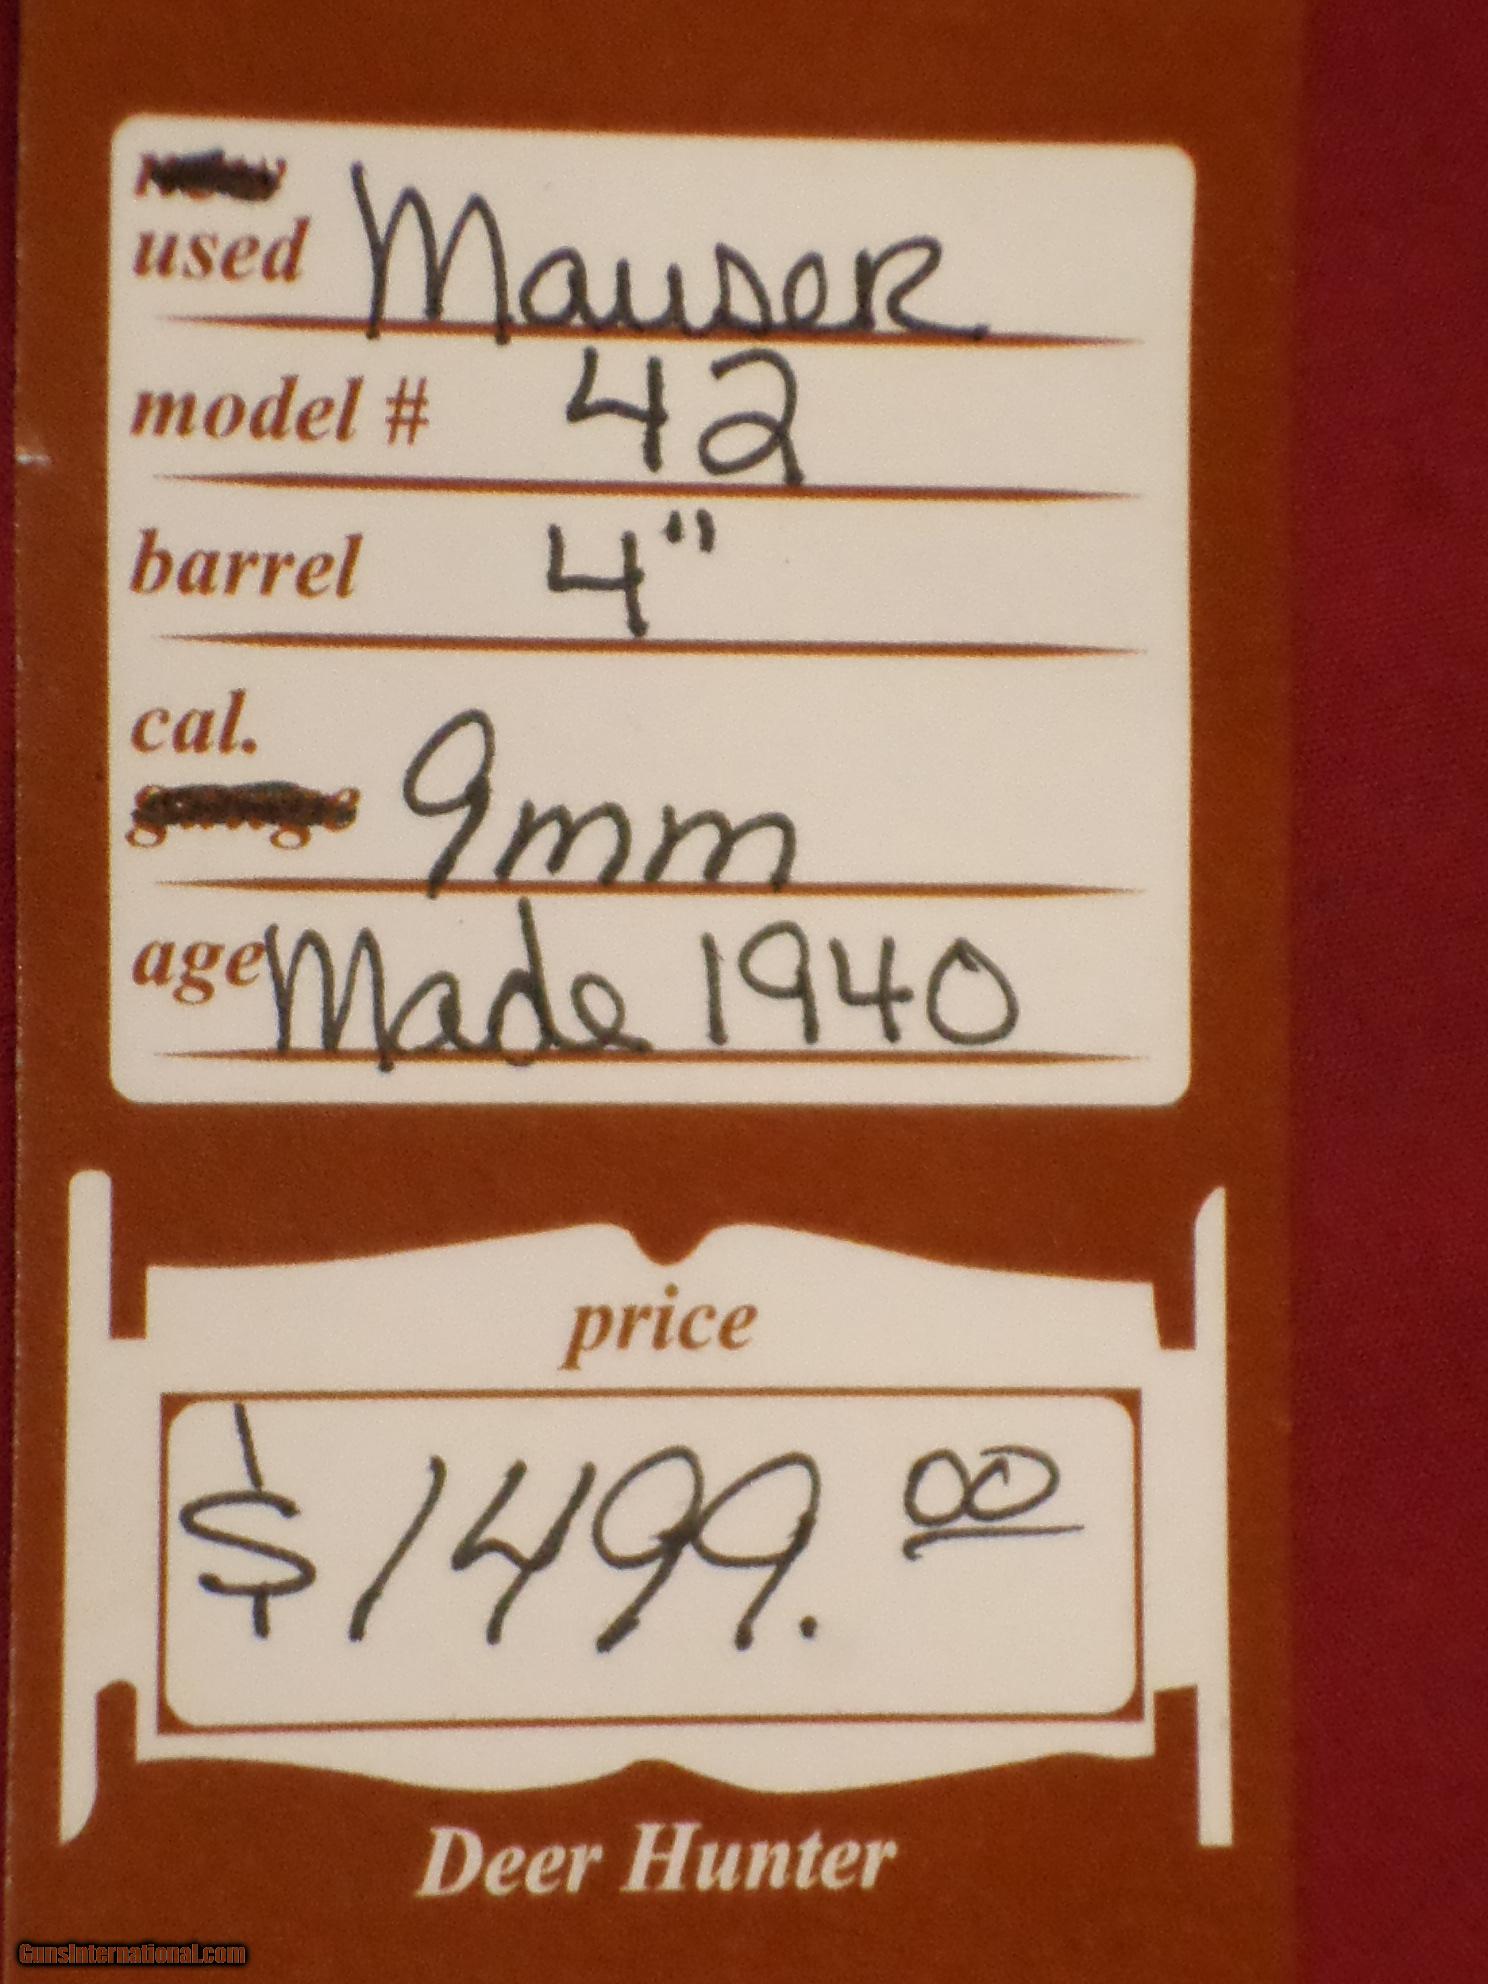 used Mauser
model # 42
barrel 4"
cal.
9mm
age Made 1940
price
$1499.00
Deer Hunter
GunsInternational.com